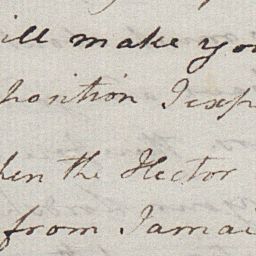 ill make you
position I exp
hen the Hector
from Jamai